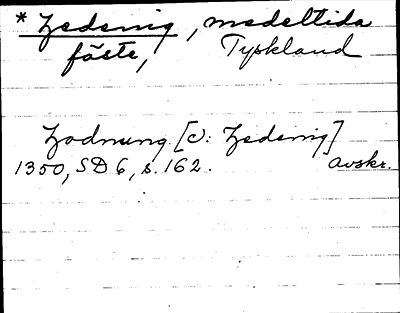 * Zedenig, medeltida
fäste, Tyskland
Zodnung [ɔ: Zedenig]
1350, SD 6, s. 162. avskr.